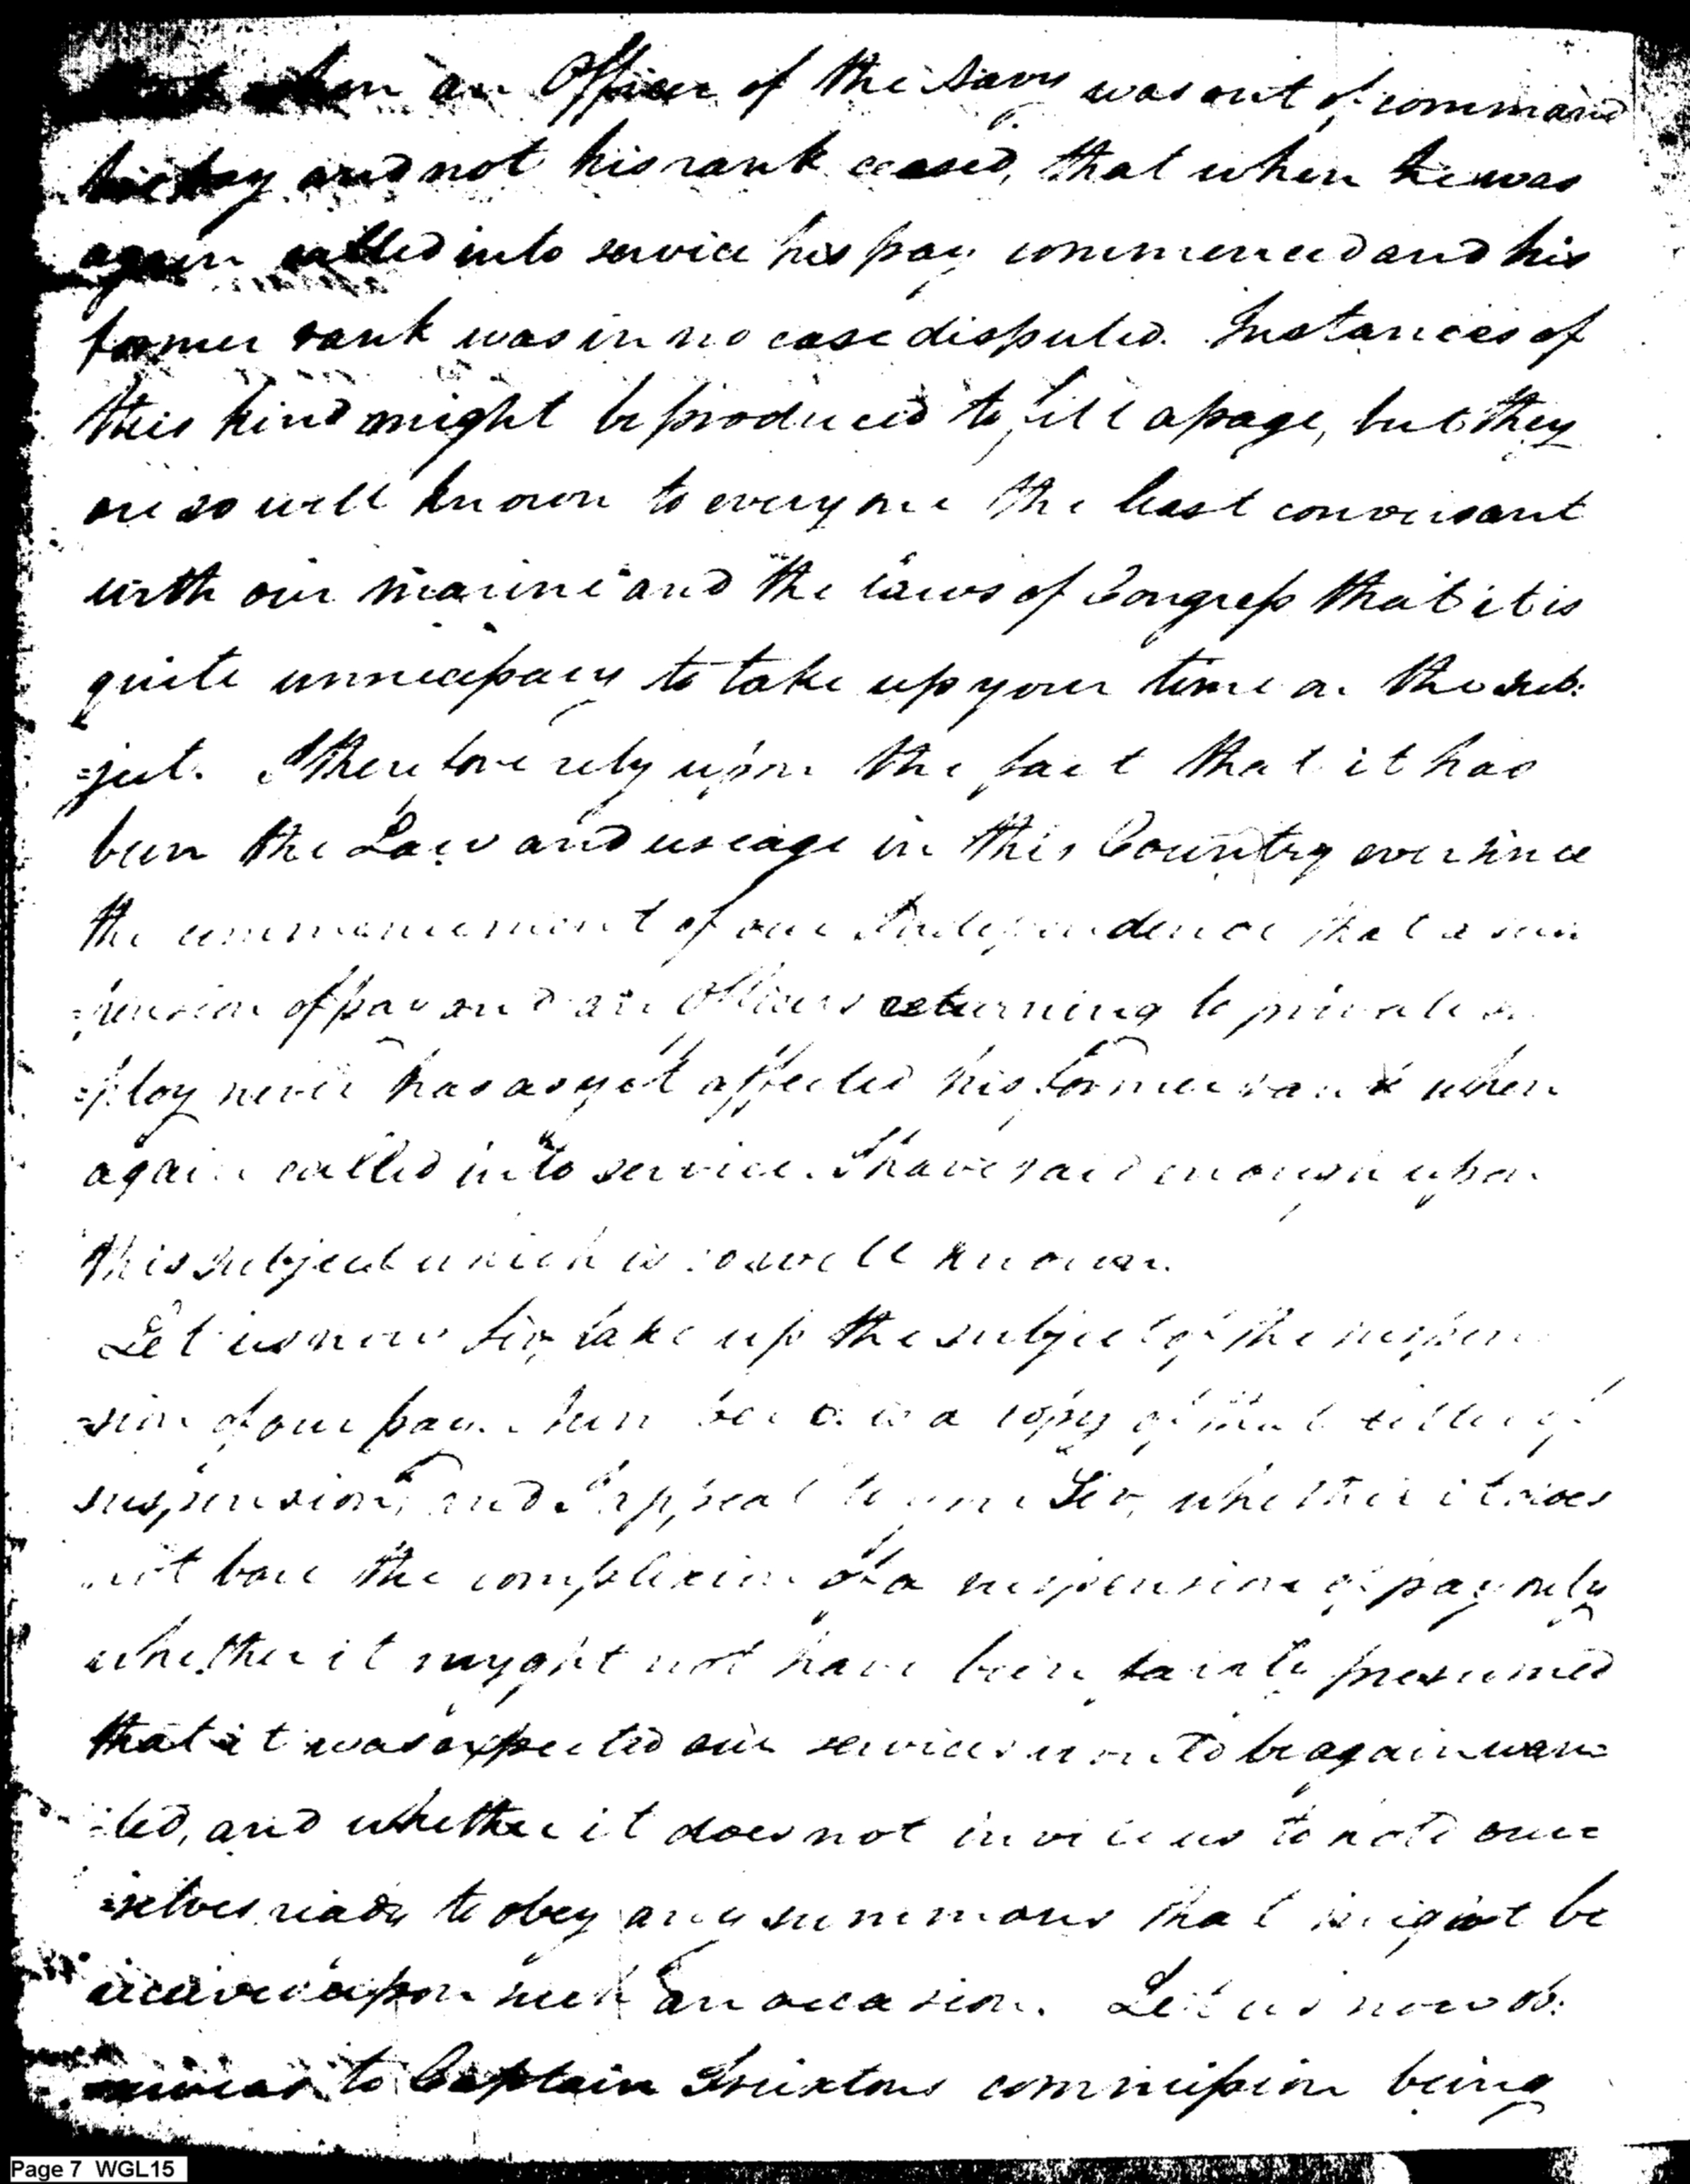 when an Officer of the Navy was out of command
his pay and not his rank ceased, that when he was
again called into service his pay commenced and his
former rank was in no case disputed. Instances of
this kind might be produced to fill a page, but they
are so well known to every one the least conversant
with our marine and the laws of Congress that it is
quite unnecessary to take up your time on the sub:
=ject. I therefore rely upon the fact that it has
been the Law and useage in this Country ever since
the commencement of our Independence that a sus
=pension of pay and an Officers returning to private em
=ploy never has as yet affected his former rank when
again called into service. I have said enough upon
this subject which is so well known.
Let us now Sir, take up the subject of the suspen
=sion of our pay. Here is a copy of that letter of
suspension, and I appeal to you Sir, whether it does
not bare the complexion of a suspension of pay only
whether it myght not have been fairly presumed
that it was expected our services were to be again wan=
=ted, and whether it does not invite us to hold our=
=selves ready to obey any summons that might be
received upon such an occasion. Let us now ob:
to Captain Truxtons commission being
Page 7 WGL15